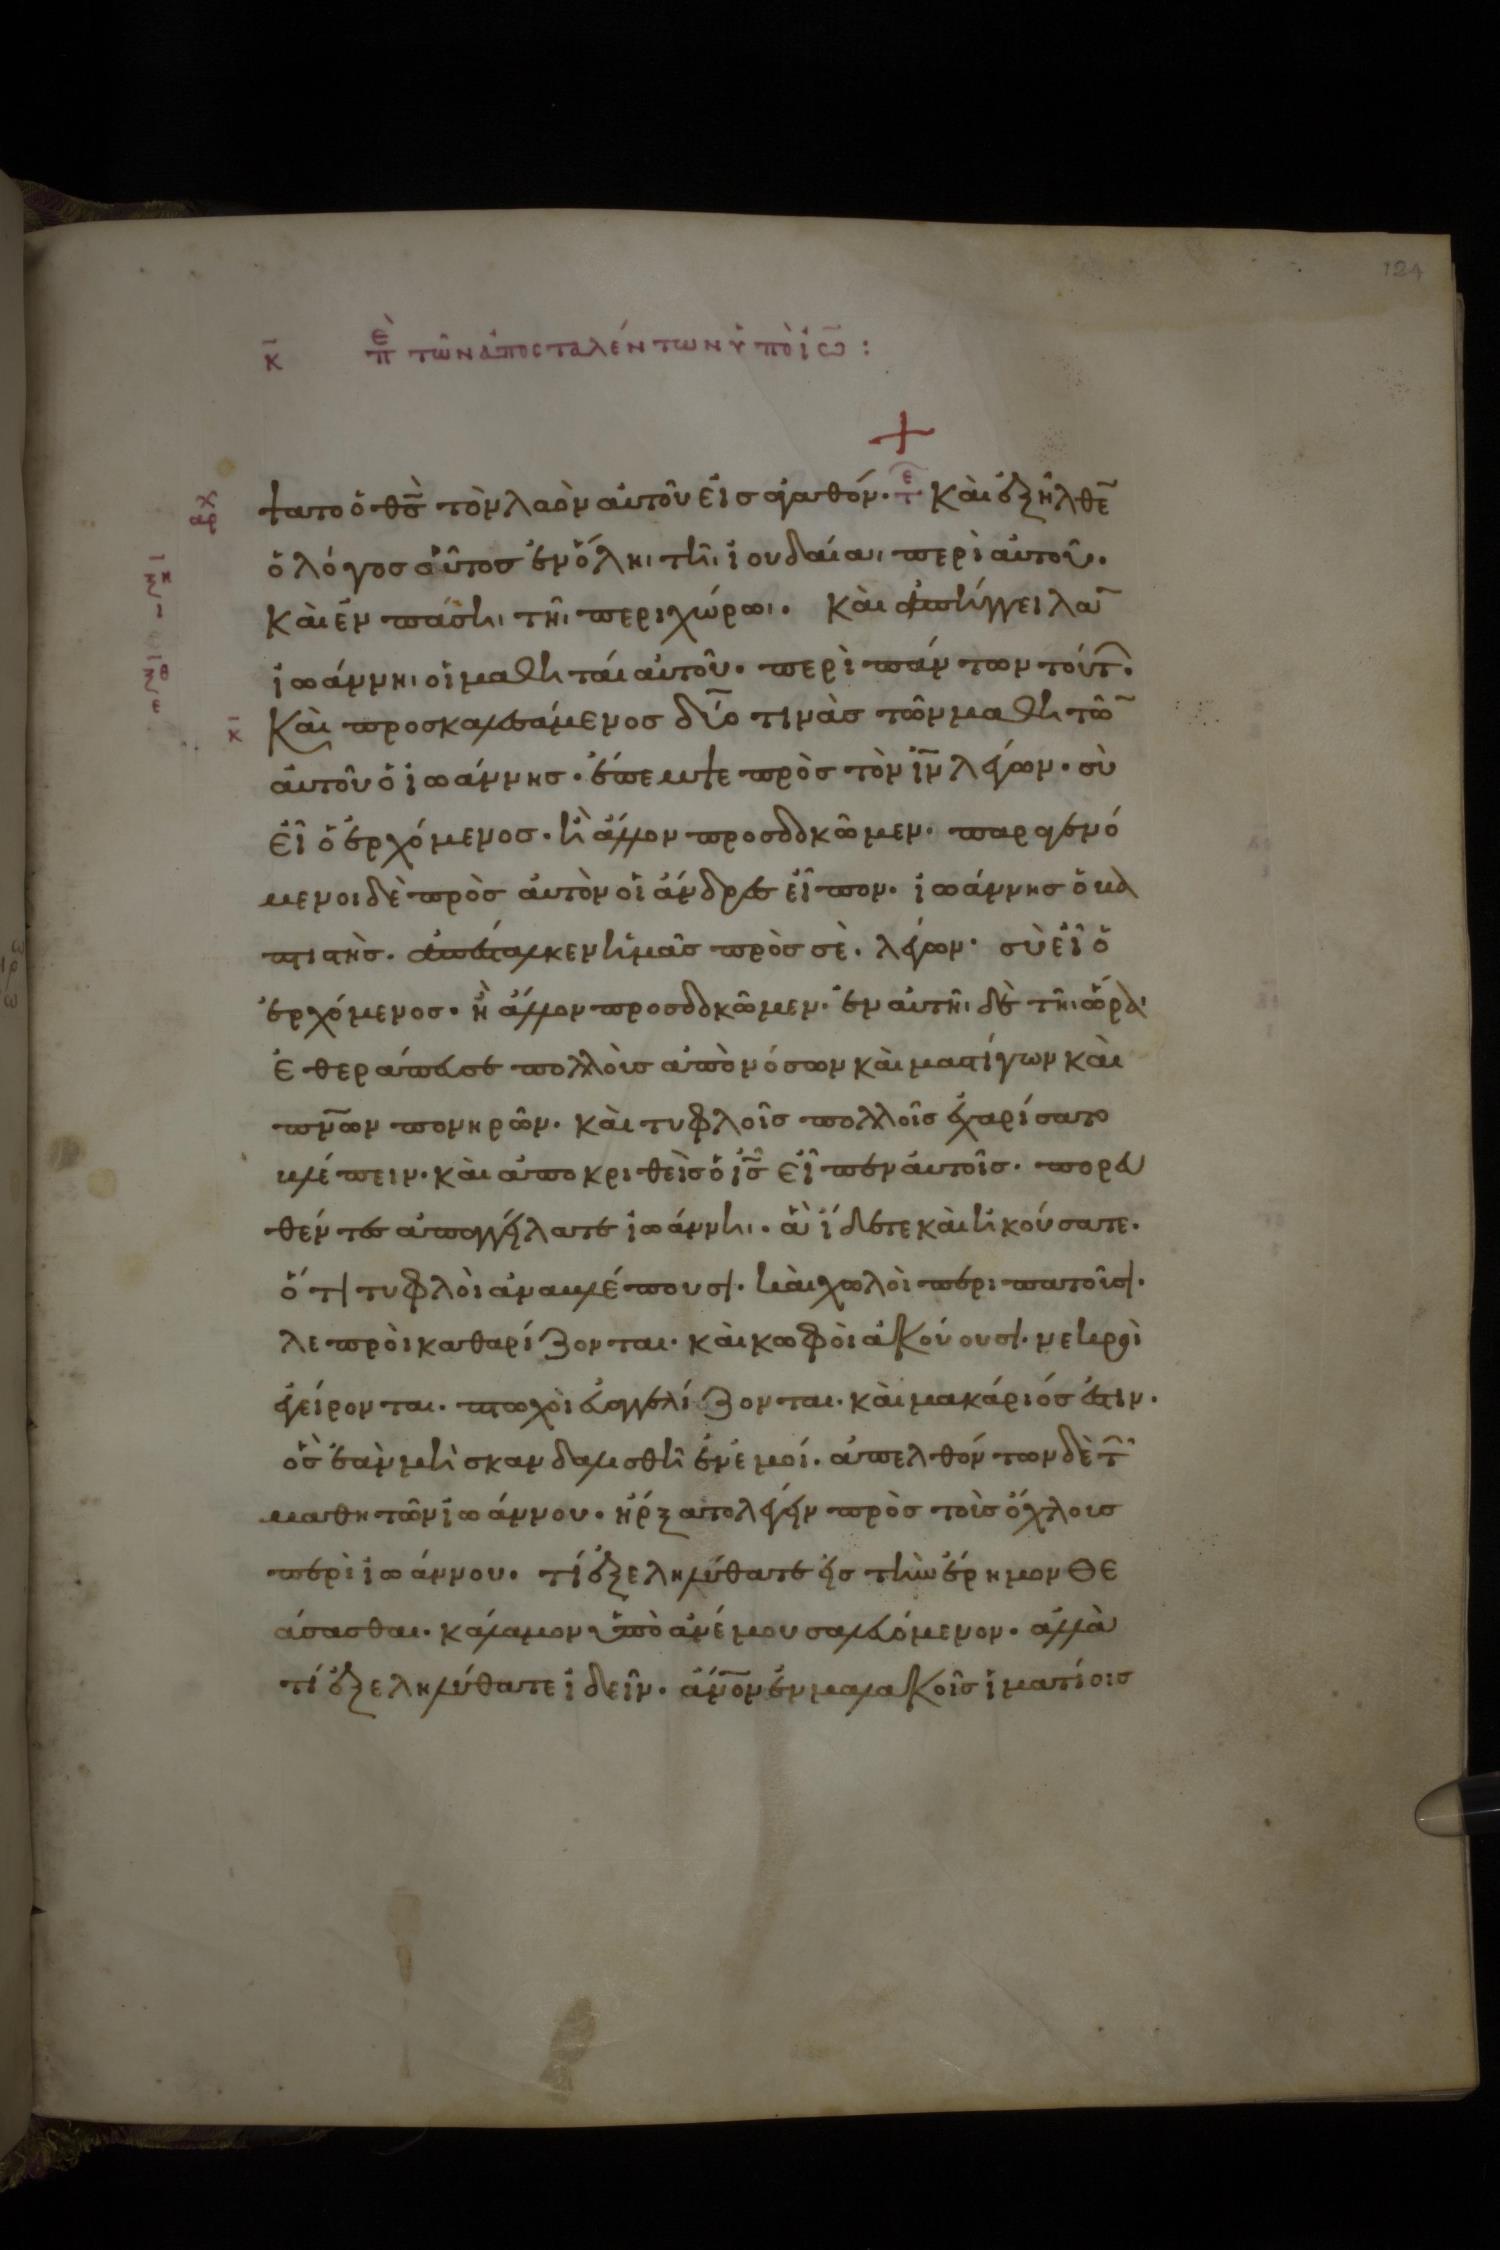 124
κ̄ πὲ τῶν ἀποσταλέντων ὑπὸ ἰω̄ :
ψατο ὁ θ̄ς̄ τὸν λαὸν αὐτοῦ εἰσ ἀγαθόν. τε καὶ ἐξῆλθε̄
αρχ
ὁ λόγοσ οὗτοσ ἐν ὅλη τῆ ἰουδαία περὶ αὐτοῦ.
ξ̄η
ι
καὶ ἐν πάση τῆ περιχώρω. καὶ ἀπήγγειλᾱ
ἰωάννη οἱ μαθηταὶ αὐτοῦ. περὶ πάντων τούτ̑.
ξ̄θ
ε
κ̄ καὶ προσκαλεσάμενοσ δύο τινὰσ τῶν μαθητῶ̄
αὐτοῦ ὁ ἰωάννησ. ἔπεμψε πρὸσ τὸν ῑν̄ λέγων. σὺ
εἶ ὁ ἐρχόμενοσ. ἢ ἄλλον προσδοκῶμεν. παραγενό
μενοι δὲ πρὸσ αὐτὸν οἱ ἄνδρεσ εἶπον. ἰωάννησ ὁ βα
πτιστὴσ. ἀπέσταλκεν ἡμᾶσ πρὸσ σὲ. λέγων. σὺ εἶ ὁ
ἐρχόμενοσ. ἢ ἄλλον προσδοκῶμεν. ἐν αὐτῆ δὲ τῆ ὥρα
ἐθεράπευσε πολλοὺσ ἀπὸ νόσων καὶ μαστίγων καὶ
πν̄ων πονηρῶν. καὶ τυφλοῖσ πολλοῖσ ἐχαρίσατο
βλέπειν. καὶ ἀποκριθεὶσ ὁ ῑς̄ εἶπεν αὐτοῖσ. πορευ
θέντεσ ἀπαγγείλατε ἰωάννη. ἃ ἴδετε καὶ ἠκούσατε.
ὅτι τυφλοὶ ἀναβλέπουσι. καὶ χωλοὶ περιπατοῦσι.
λεπροὶ καθαρίζονται. καὶ κωφοὶ ἀκούουσι. νεκροὶ
ἐγείρονται. πτωχοὶ εὐαγγελίζονται. καὶ μακάριόσ ἐστιν.
ὃσ ἐὰν μὴ σκανδαλισθῆ ἐν ἐμοί. ἀπελθόντων δὲ τ̑
μαθητῶν ἰωάννου. ἤρξατο λέγειν πρὸσ τοὺσ ὄχλουσ
περὶ ἰωάννου. τί ἐξεληλύθατε εἰσ τὴν ἔρημον θε
άσασθαι. κάλαμον ὑπὸ ἀνέμου σαλευόμενον. ἀλλὰ
τί ἐξεληλύθατε ἰδεῖν. ἄν̄ον ἐν μαλακοῖσ ἱματίοισ